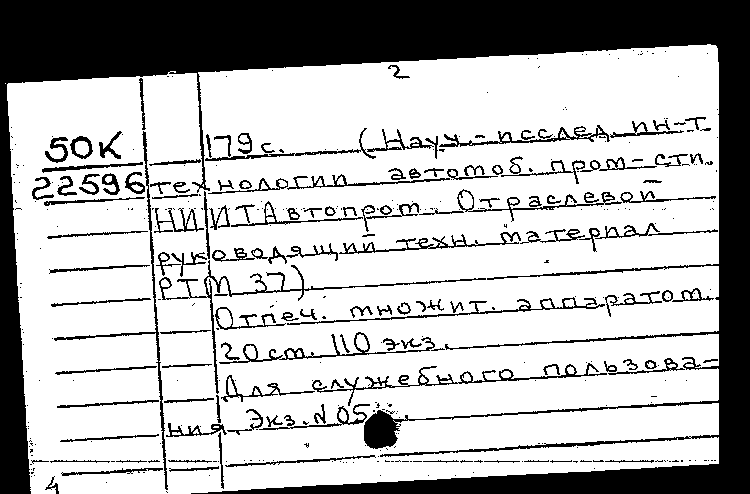 2
50К 179 с. (Науч.-исслед. ин-т
22596 технологии автомоб. пром-сти.
НИИТАвтопром. Отраслевой
руководящий техн. материал
РТМ 37).
Отпеч. множит. аппаратом.
20 см. 110 экз.
Для служебного пользова-
ния. Экз. N 05
4